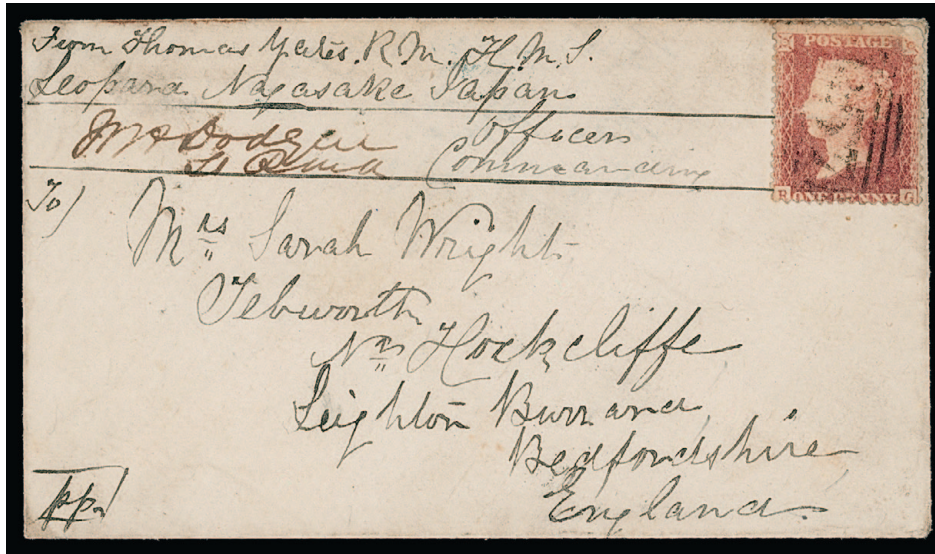 From Thomas Yates. R.M. H.M.S.
Leopard Nagasake Japan
Officers
Commanding
To)
Mrs Sarah Wright
Tebworth
Nr Hockcliffe
Leighton Burrard
Bedfordshire
England
pp
POSTAGE
R ONE PENNY G